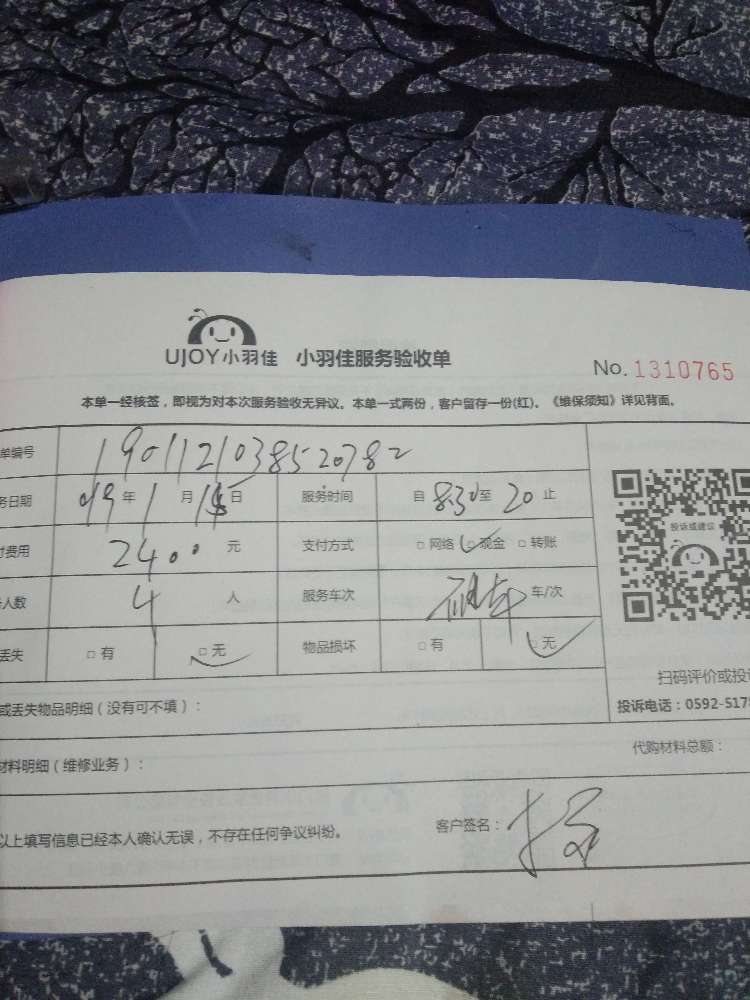 UJOY小羽佳 小羽佳服务验收单
No. 1310765
本单一经核签，即视为对本次服务验收无异议。本单一式两份，客户留存一份(红)。《维保须知》详见背面。
单编号 1901121038520782
务日期 19年1月15日 服务时间 自830至20止
投诉或建议
付费用 2400元 支付方式 □网络 □现金 □转账
人数 4人 服务车次 车/次
丢失 □有 □无 物品损坏 □有 □无
扫码评价或投诉
或丢失物品明细（没有可不填）：
投诉电话：0592-5178
材料明细（维修业务）：
代购材料总额：
以上填写信息已经本人确认无误，不存在任何争议纠纷。 客户签名：